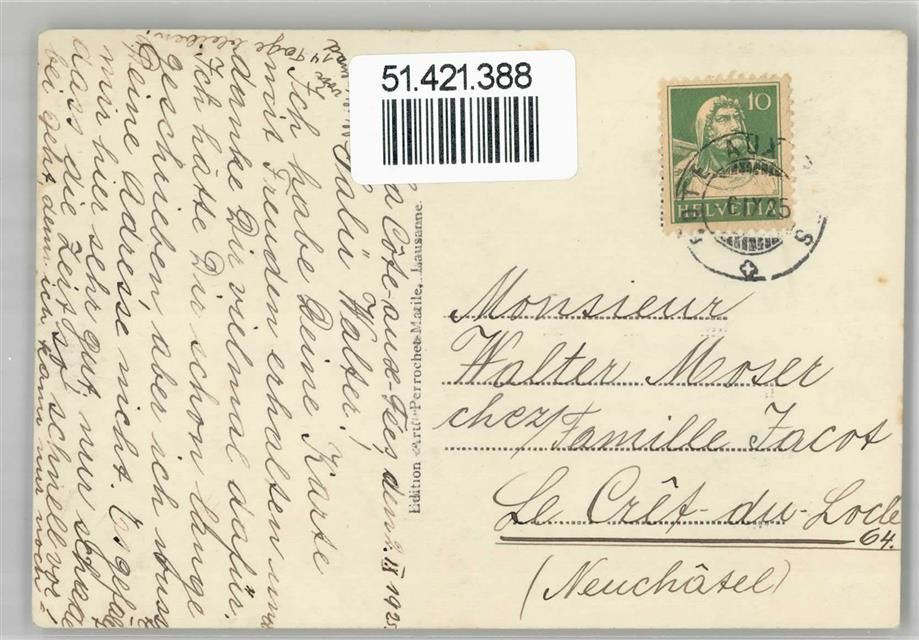 51.421.388
10
HELVETIA
IX. 25
Monsieur
Walter Moser
chez Famille Jacot
Le Crêt-du-Locle
64.
(Neuchâtel)
Edition Perrochet-Matile, Lausanne.
Côte-aux-Fées, den IX 1925.
Salü Walter!
Ich habe Deine Karte
mit Freuden erhalten und
danke Dir vielmal dafür.
Ich hätte Dir schon lange
geschrieben, aber ich wusste
Deine Adresse nicht. Es gefällt
mir hier sehr gut, nur schade
dass die Zeit so schnell vor-
bei geht, denn ich kann nur noch
14 Tage bleiben!